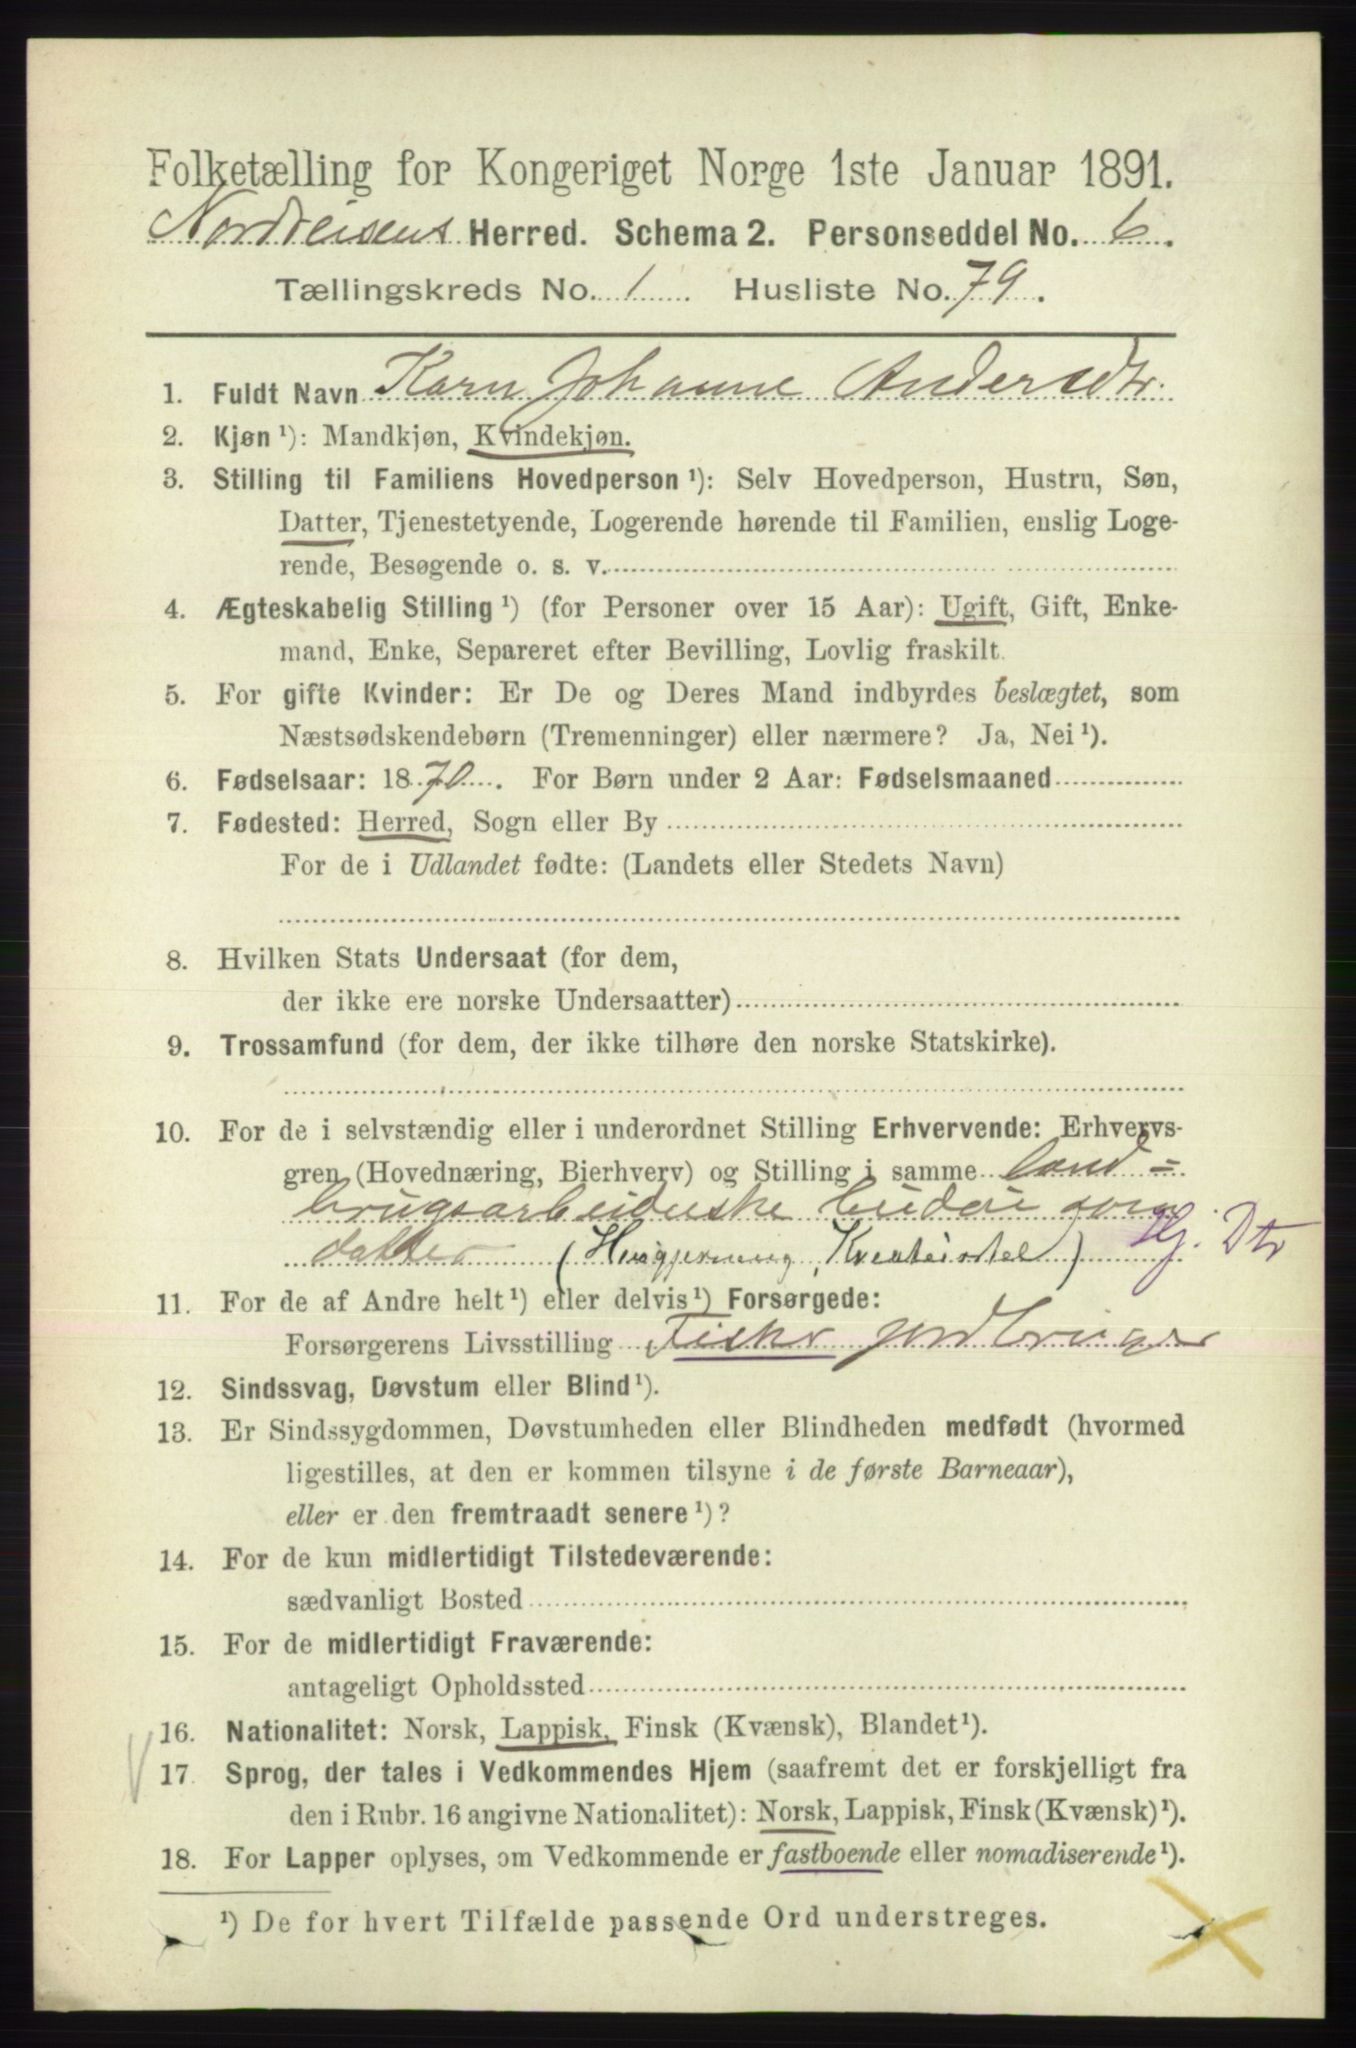 Folketælling for Kongeriget Norge 1ste Januar 1891.
Nordreisens Herred. Schema 2. Personseddel No. 6.
Tællingskreds No. 1 Husliste No. 79.
1. Fuldt Navn Karn Johanne Andersdtr.
2. Kjøn ¹): Mandkjøn, Kvindekjøn.
3. Stilling til Familiens Hovedperson ¹): Selv Hovedperson, Hustru, Søn,
Datter, Tjenestetyende, Logerende hørende til Familien, enslig Loge-
rende, Besøgende o. s. v.
4. Ægteskabelig Stilling ¹) (for Personer over 15 Aar): Ugift, Gift, Enke-
mand, Enke, Separeret efter Bevilling, Lovlig fraskilt.
5. For gifte Kvinder: Er De og Deres Mand indbyrdes beslægtet, som
Næstsødskendebørn (Tremenninger) eller nærmere? Ja, Nei ¹).
6. Fødselsaar: 1870. For Børn under 2 Aar: Fødselsmaaned
7. Fødested: Herred, Sogn eller By
For de i Udlandet fødte: (Landets eller Stedets Navn)
8. Hvilken Stats Undersaat (for dem,
der ikke ere norske Undersaatter)
9. Trossamfund (for dem, der ikke tilhøre den norske Statskirke).
10. For de i selvstændig eller i underordnet Stilling Erhvervende: Erhvervs-
gren (Hovednæring, Bierhverv) og Stilling i samme land=
brugsarbeiderske budeie som
datter (Husgjerning, Kreaturstel) Hj. Dtr
11. For de af Andre helt ¹) eller delvis ¹) Forsørgede:
Forsørgerens Livsstilling Fisker jordbruger
12. Sindssvag, Døvstum eller Blind ¹).
13. Er Sindssygdommen, Døvstumheden eller Blindheden medfødt (hvormed
ligestilles, at den er kommen tilsyne i de første Barneaar),
eller er den fremtraadt senere ¹)?
14. For de kun midlertidigt Tilstedeværende:
sædvanligt Bosted
15. For de midlertidigt Fraværende:
antageligt Opholdssted
16. Nationalitet: Norsk, Lappisk, Finsk (Kvænsk), Blandet ¹).
17. Sprog, der tales i Vedkommendes Hjem (saafremt det er forskjelligt fra
den i Rubr. 16 angivne Nationalitet): Norsk, Lappisk, Finsk (Kvænsk) ¹).
18. For Lapper oplyses, om Vedkommende er fastboende eller nomadiserende ¹).
¹) De for hvert Tilfælde passende Ord understreges.